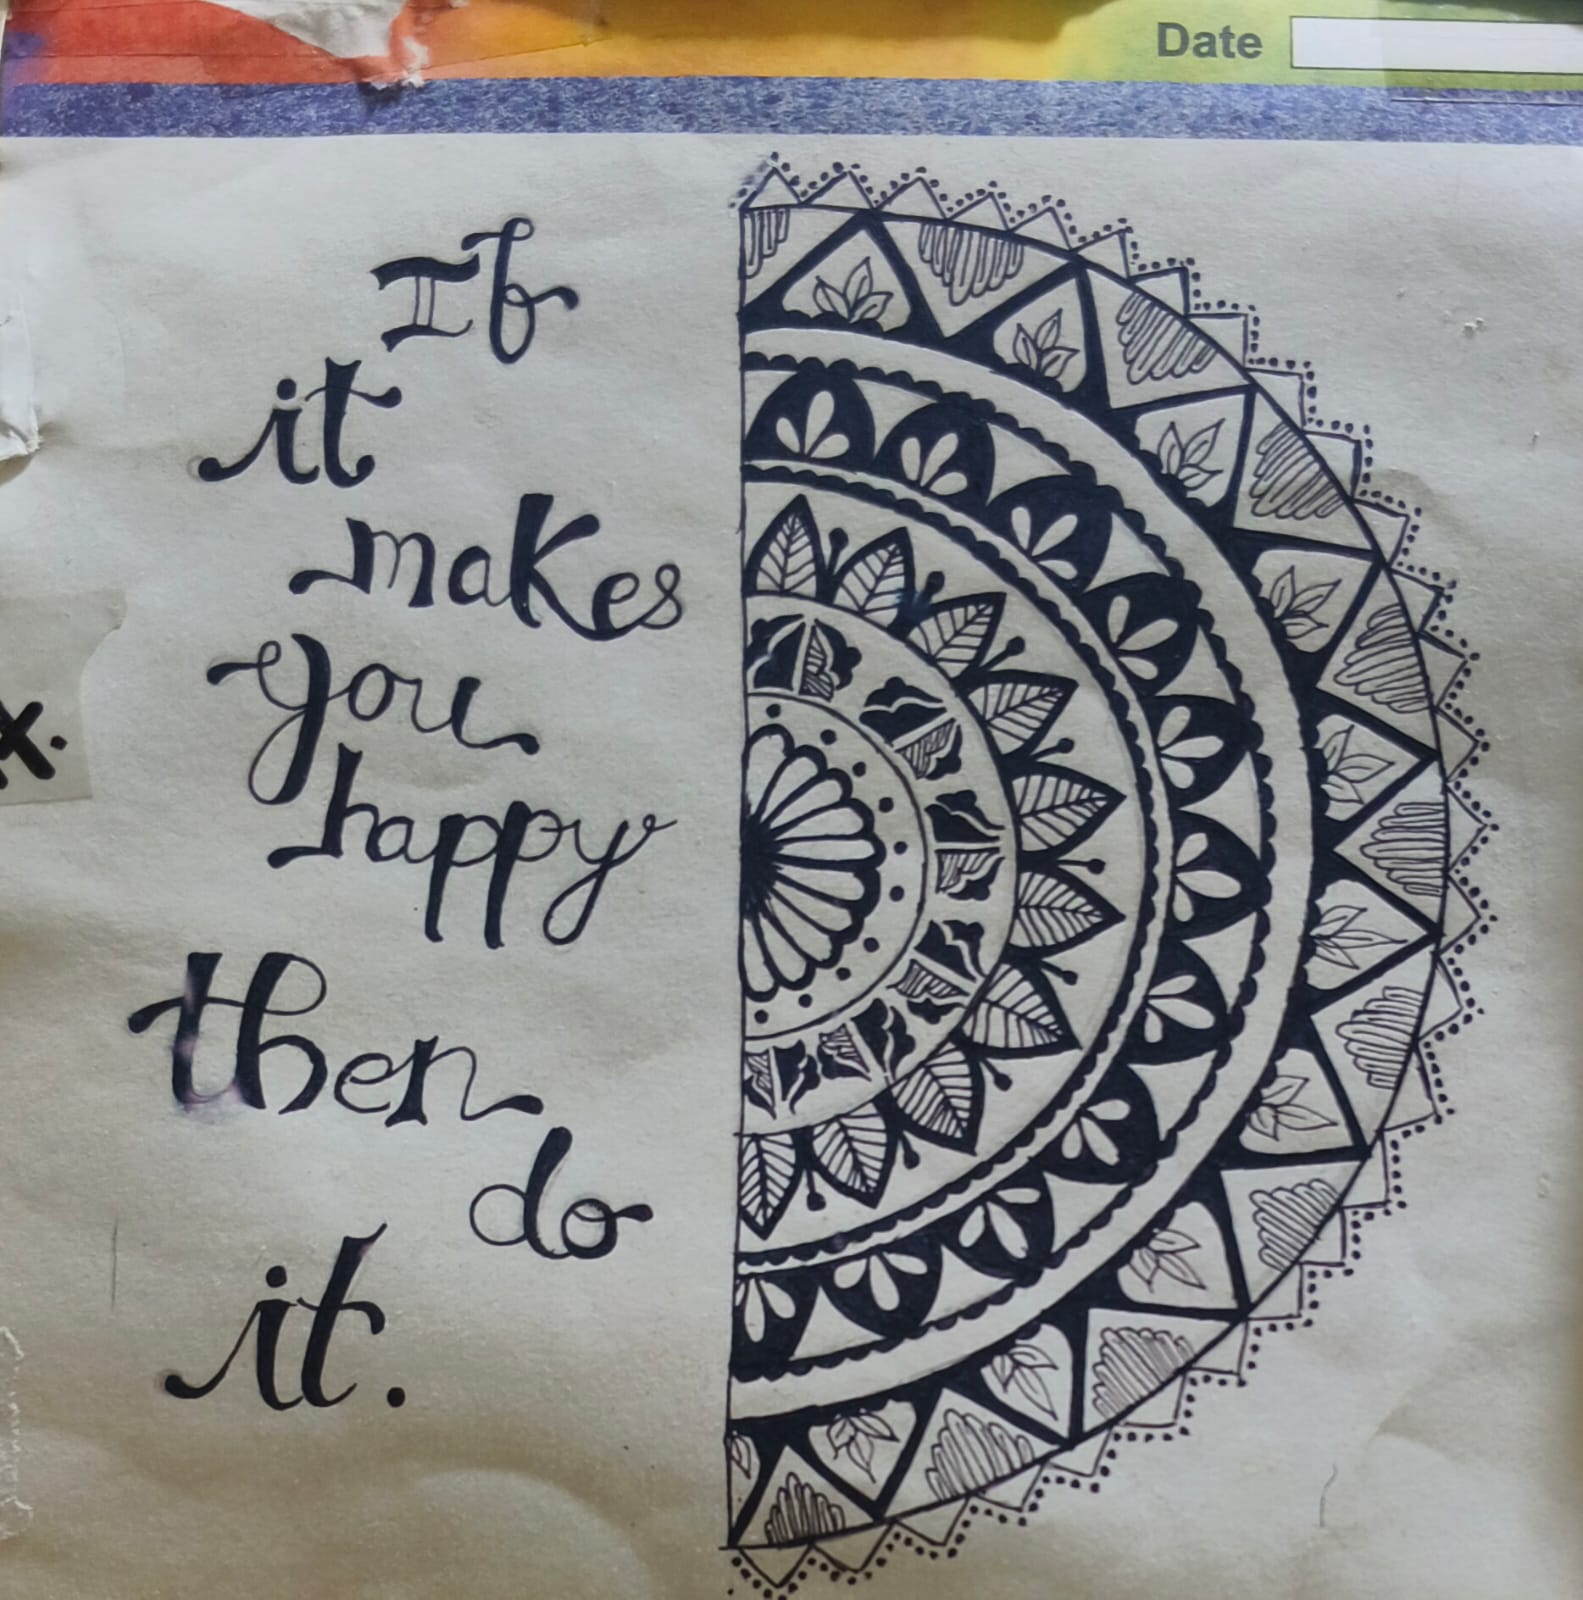 Date
If
it
makes
you
happy
then
do
it.